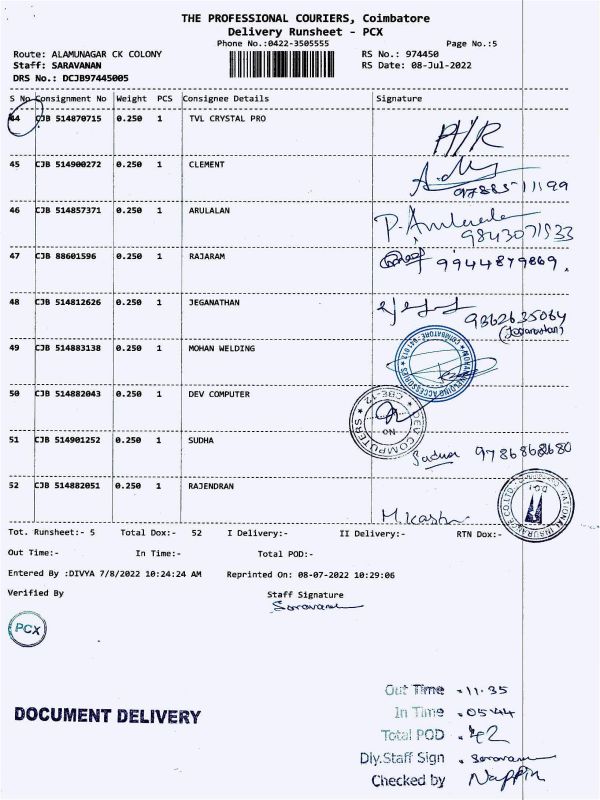 THE PROFESSIONAL COURIERS, Coimbatore
Delivery Runsheet - PCX
Phone No.:0422-3505555
Page No.:5
Route: ALAMUNAGAR CK COLONY
RS No.: 974450
Staff: SARAVANAN
RS Date: 08-Jul-2022
DRS No.: DCJB97445005
S No Consignment No Weight PCS Consignee Details Signature
44 CJB 514870715 0.250 1 TVL CRYSTAL PRO
45 CJB 514900272 0.250 1 CLEMENT
97885 11199
46 CJB 514857371 0.250 1 ARULALAN
9843071533
47 CJB 88601596 0.250 1 RAJARAM 9944879869.
48 CJB 514812626 0.250 1 JEGANATHAN
9362635064
49 CJB 514883138 0.250 1 MOHAN WELDING
50 CJB 514882043 0.250 1 DEV COMPUTER
DEV COMPUTERS
51 CJB 514901252 0.250 1 SUDHA
9786868680
52 CJB 514882051 0.250 1 RAJENDRAN
Tot. Runsheet:- 5 Total Dox:- 52 I Delivery:- II Delivery:- RTN Dox:-
Out Time:- In Time:- Total POD:-
Entered By :DIVYA 7/8/2022 10:24:24 AM Reprinted On: 08-07-2022 10:29:06
Verified By Staff Signature
Saravanan
PCX
Out Time - 11.35
DOCUMENT DELIVERY
In Time . 05.44
Total POD . 42
Dly.Staff Sign . Saravanan
Checked by